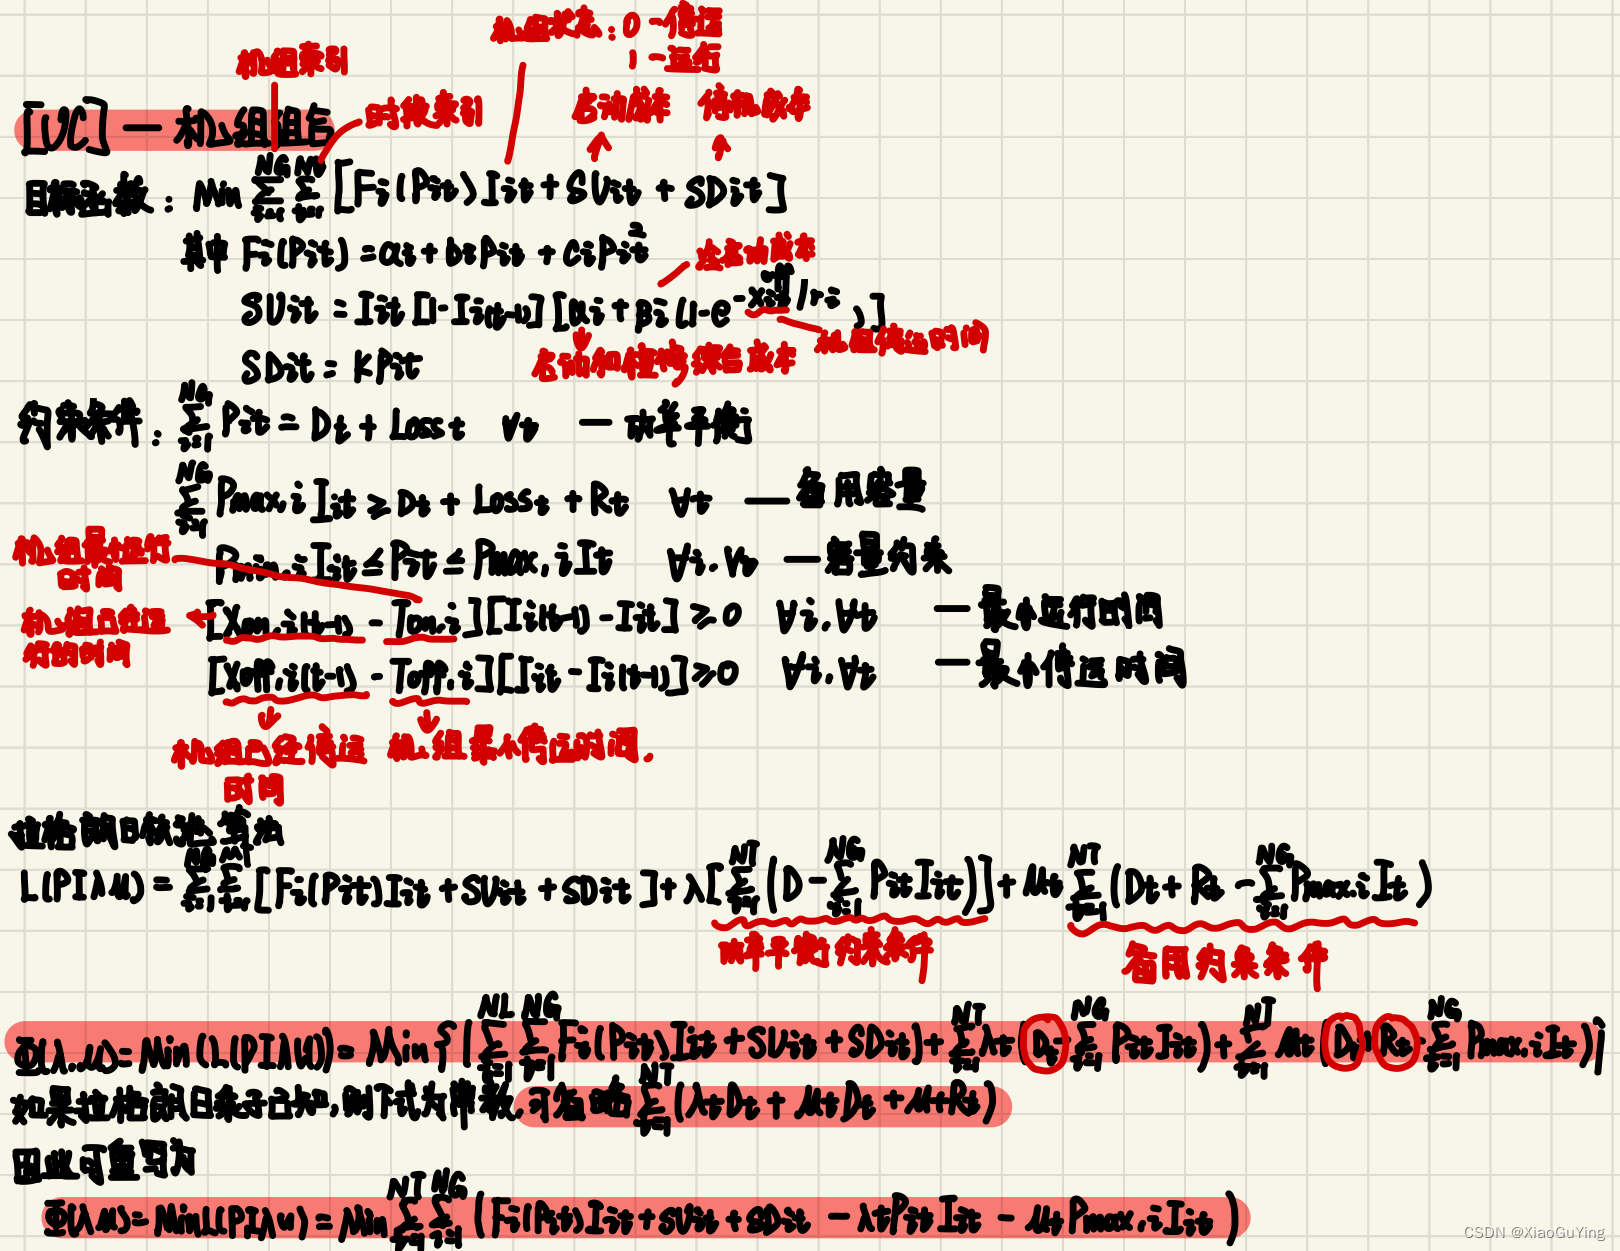 机组状态：0-停运
1-运行
机组索引
时段索引
启动成本 停机成本
[UC] — 机组组合
目标函数：Min ∑_{i=1}^{NG} ∑_{t=1}^{NT} [Fi(Pit)Iit + SUit + SDit]
其中 Fi(Pit) = ai + biPit + ciPit²
冷启动成本
SUit = Iit [1-Ii(t-1)] [αi + βi(1-e^{-Xit^{off}/τi})]
机组停运时间
启动和维修综合成本
SDit = KPit
约束条件：∑_{i=1}^{NG} Pit = Dt + Losst ∀t — 功率平衡
∑_{i=1}^{NG} Pmax,i Iit ≥ Dt + Losst + Rt ∀t — 备用容量
Pmin,i Iit ≤ Pit ≤ Pmax,i It ∀i,∀t — 容量约束
机组最小运行
时间
[Xon,i(t-1) - Ton,i][Ii(t-1) - Iit] ≥ 0 ∀i,∀t — 最小运行时间
机组已经运
行的时间
[Xoff,i(t-1) - Toff,i][Iit - Ii(t-1)] ≥ 0 ∀i,∀t — 最小停运时间
机组已经停运 机组最小停运时间.
时间
拉格朗日松弛算法
L(PIλμ) = ∑_{i=1}^{NG} ∑_{t=1}^{NT} [Fi(Pit)Iit + SUit + SDit] + λ[∑_{t=1}^{NT} (D - ∑_{i=1}^{NG} PitIit)] + μt ∑_{t=1}^{NT} (Dt + Rt - ∑_{i=1}^{NG} Pmax,i It)
功率平衡约束条件
备用约束条件
Φ(λ,μ) = Min(L(PIλμ)) = Min{(∑_{t=1}^{NL} ∑_{i=1}^{NG} Fi(Pit)Iit + SUit + SDit) + ∑_{t=1}^{NT} λt(Dt - ∑_{i=1}^{NG} PitIit) + ∑_{t=1}^{NT} μt(Dt + Rt - ∑_{i=1}^{NG} Pmax,i It)}
如果拉格朗日乘子已知,则下式为常数,可忽略 ∑_{t=1}^{NT} (λtDt + μtDt + μtRt)
因此可重写为
Φ(λμ) = MinL(PIλμ) = Min ∑_{t=1}^{NT} ∑_{i=1}^{NG} (Fi(Pit)Iit + SUit + SDit - λtPitIit - μtPmax,i Iit)
CSDN @XiaoGuYing